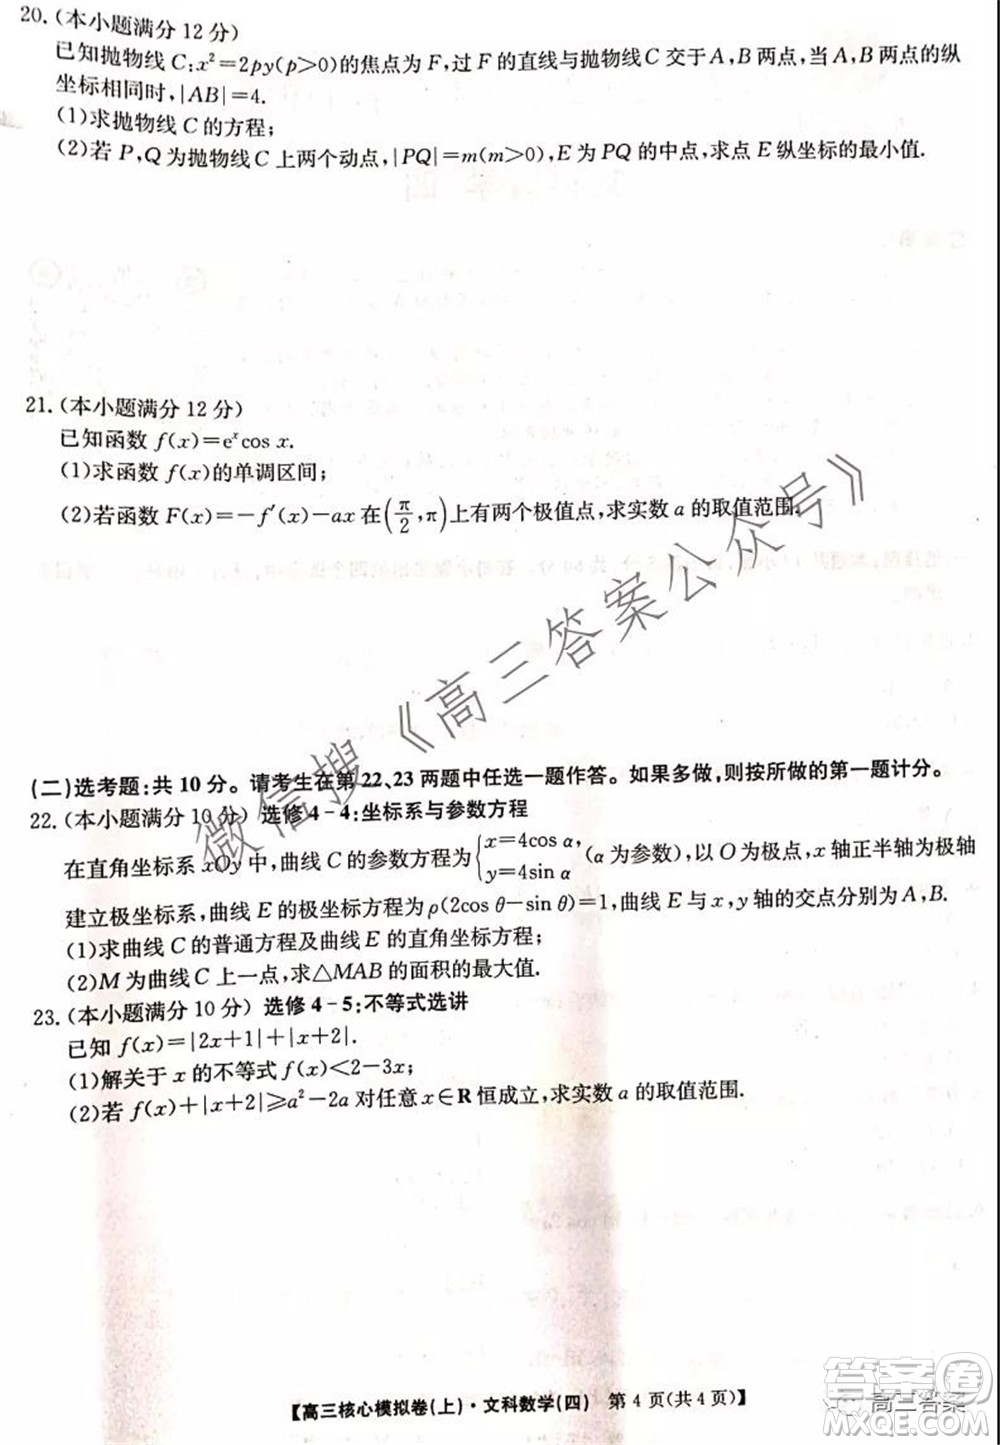 20.(本小题满分12分)
已知抛物线C:x²=2py(p>0)的焦点为F,过F的直线与抛物线C交于A,B两点,当A,B两点的纵
坐标相同时,|AB|=4.
(1)求抛物线C的方程;
(2)若P,Q为抛物线C上两个动点,|PQ|=m(m>0),E为PQ的中点,求点E纵坐标的最小值.
21.(本小题满分12分)
已知函数f(x)=eˣcos x.
(1)求函数f(x)的单调区间;
(2)若函数F(x)=-f′(x)-ax在(π/2,π)上有两个极值点,求实数a的取值范围.
微信搜《高三答案公众号》
(二)选考题:共10分。请考生在第22、23两题中任选一题作答。如果多做,则按所做的第一题计分。
22.(本小题满分10分)选修4-4:坐标系与参数方程
在直角坐标系xOy中,曲线C的参数方程为{x=4cos α, y=4sin α (α为参数),以O为极点,x轴正半轴为极轴
建立极坐标系,曲线E的极坐标方程为ρ(2cos θ-sin θ)=1,曲线E与x,y轴的交点分别为A,B.
(1)求曲线C的普通方程及曲线E的直角坐标方程;
(2)M为曲线C上一点,求△MAB的面积的最大值.
23.(本小题满分10分)选修4-5:不等式选讲
已知f(x)=|2x+1|+|x+2|.
(1)解关于x的不等式f(x)<2-3x;
(2)若f(x)+|x+2|≥a²-2a对任意x∈R恒成立,求实数a的取值范围.
【高三核心模拟卷(上)·文科数学(四) 第4页(共4页)】
高三答案
答案圈
MXQE.COM